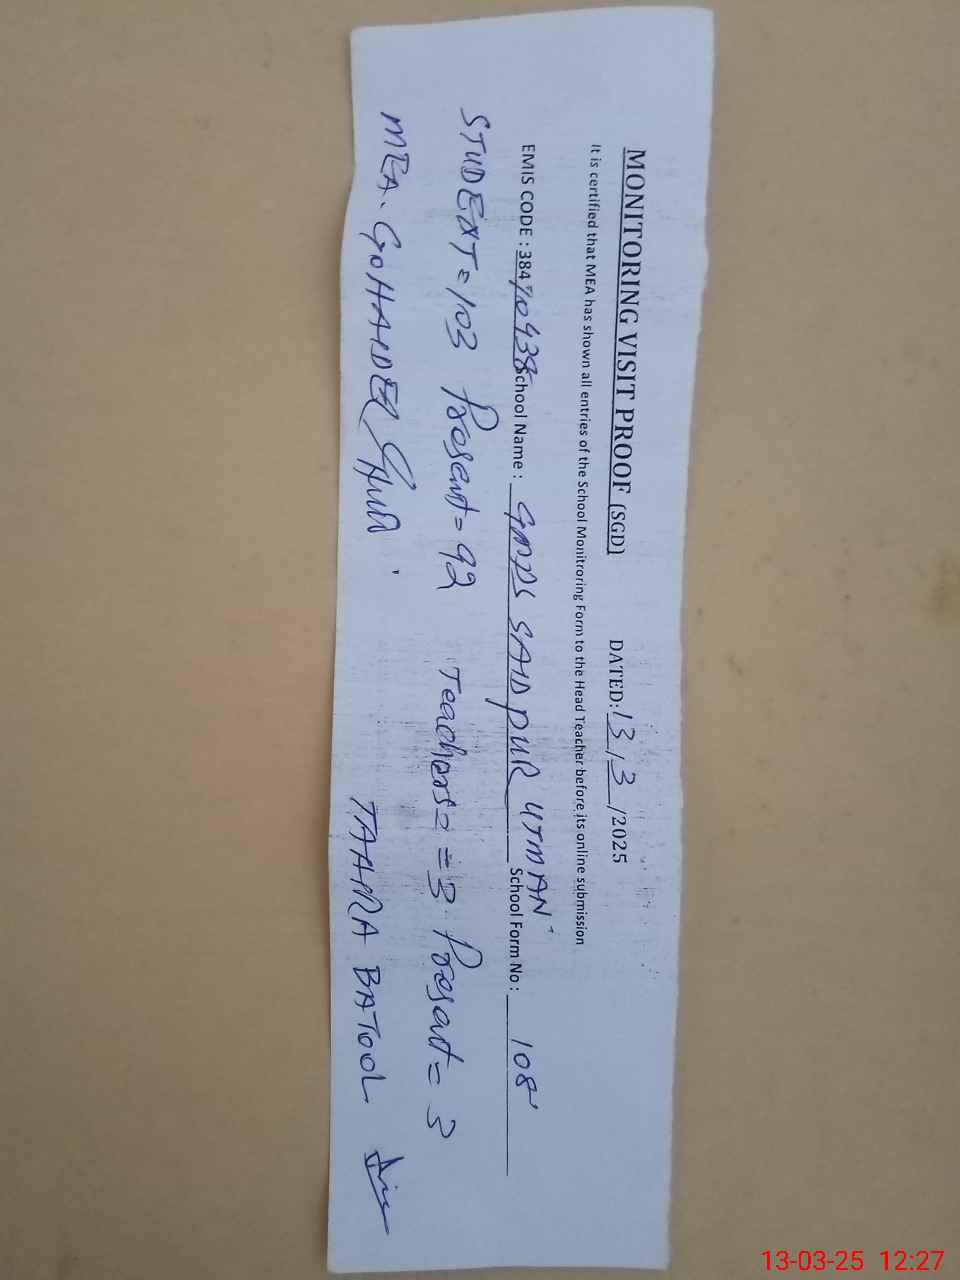 MONITORING VISIT PROOF (SGD) DATED: 13/3/2025
It is certified that MEA has shown all entries of the School Monitroring Form to the Head Teacher before its online submission
EMIS CODE : 38470438 School Name : GMPS SAID PUR UTMAN School Form No : 108
STUDENT = 103 Present = 92 Teachers = = 3 Present = 3
MEA. G.HAIDER TAHIRA BATOOL
13-03-25 12:27